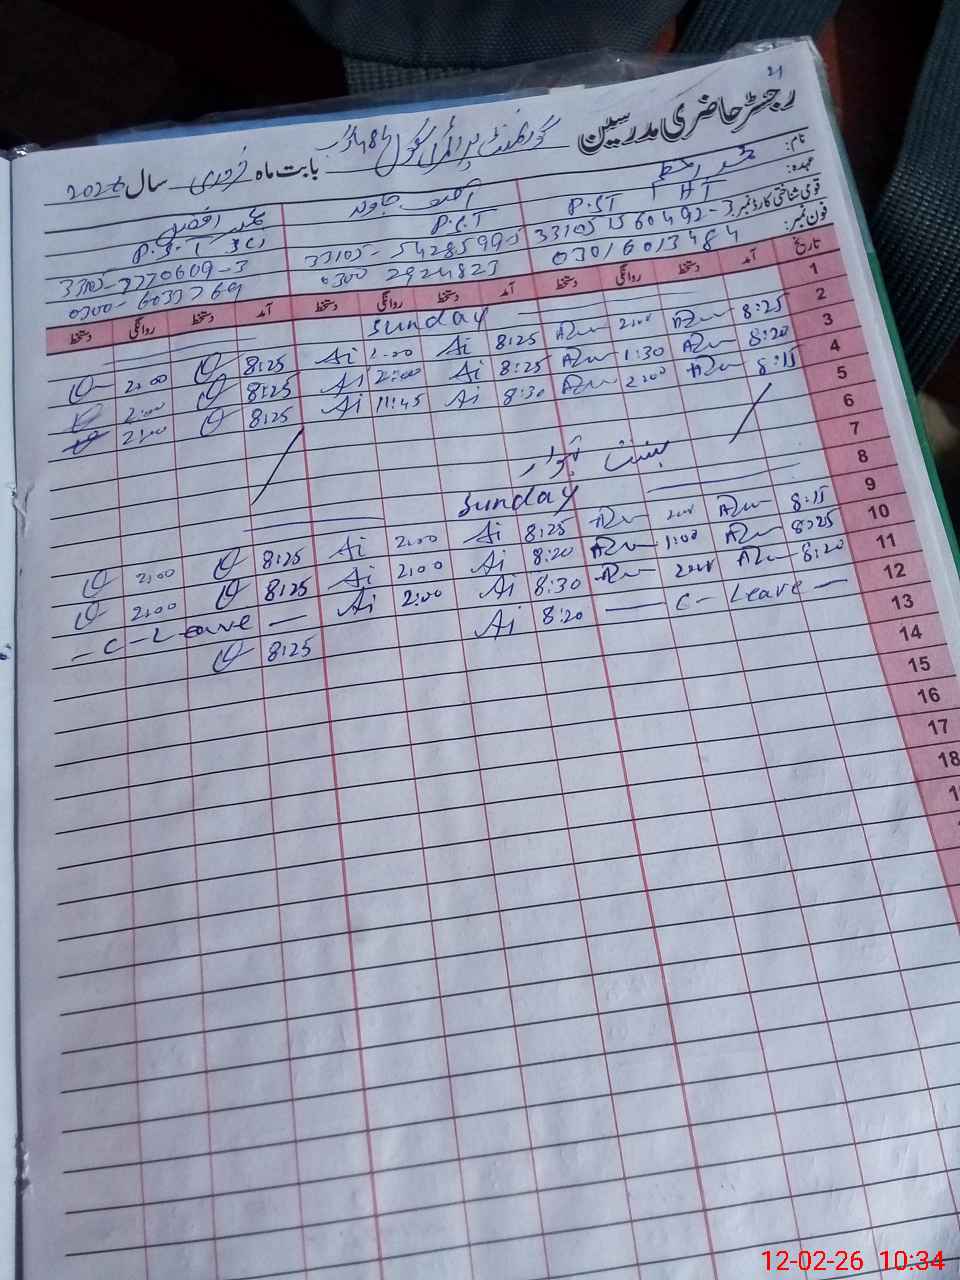 21
رجسٹر حاضری مدرسین گورنمنٹ پرائمری سکول 484 گ ب بابت ماہ فروری سال 2026
نام: محمد اعظم آصف جاوید محمد افضل
عہدہ: P.S.T H T P.S.T P.S.T
قومی شناختی کارڈ نمبر: 33105 1560492-3 33105-5428599-5 33105-7720609-3
فون نمبر: 0301 6013484 0300 2924823 0300-6033769
تاریخ آمد دستخط روانگی دستخط آمد دستخط روانگی دستخط آمد دستخط روانگی دستخط
1 Sunday
2 8:25 2:00 8:25 Ai Ai 8:25 2:00
3 8:20 1:30 8:25 Ai 2:00 Ai 8:25 2:00
4 8:15 2:00 8:30 Ai 11:45 Ai 8:25 2:00
5
6
7
بسنت تہوار
8 Sunday
9 8:15 2:00 8:25 Ai 2:00 Ai 8:25 2:00
10 8:25 1:00 8:20 Ai 2:00 Ai 8:25 2:00
11 8:20 2:00 8:30 Ai 2:00 Ai – C – Leave –
12 – C – Leave – 8:20 Ai 8:25
13
14
15
16
17
18
12-02-26 10:34